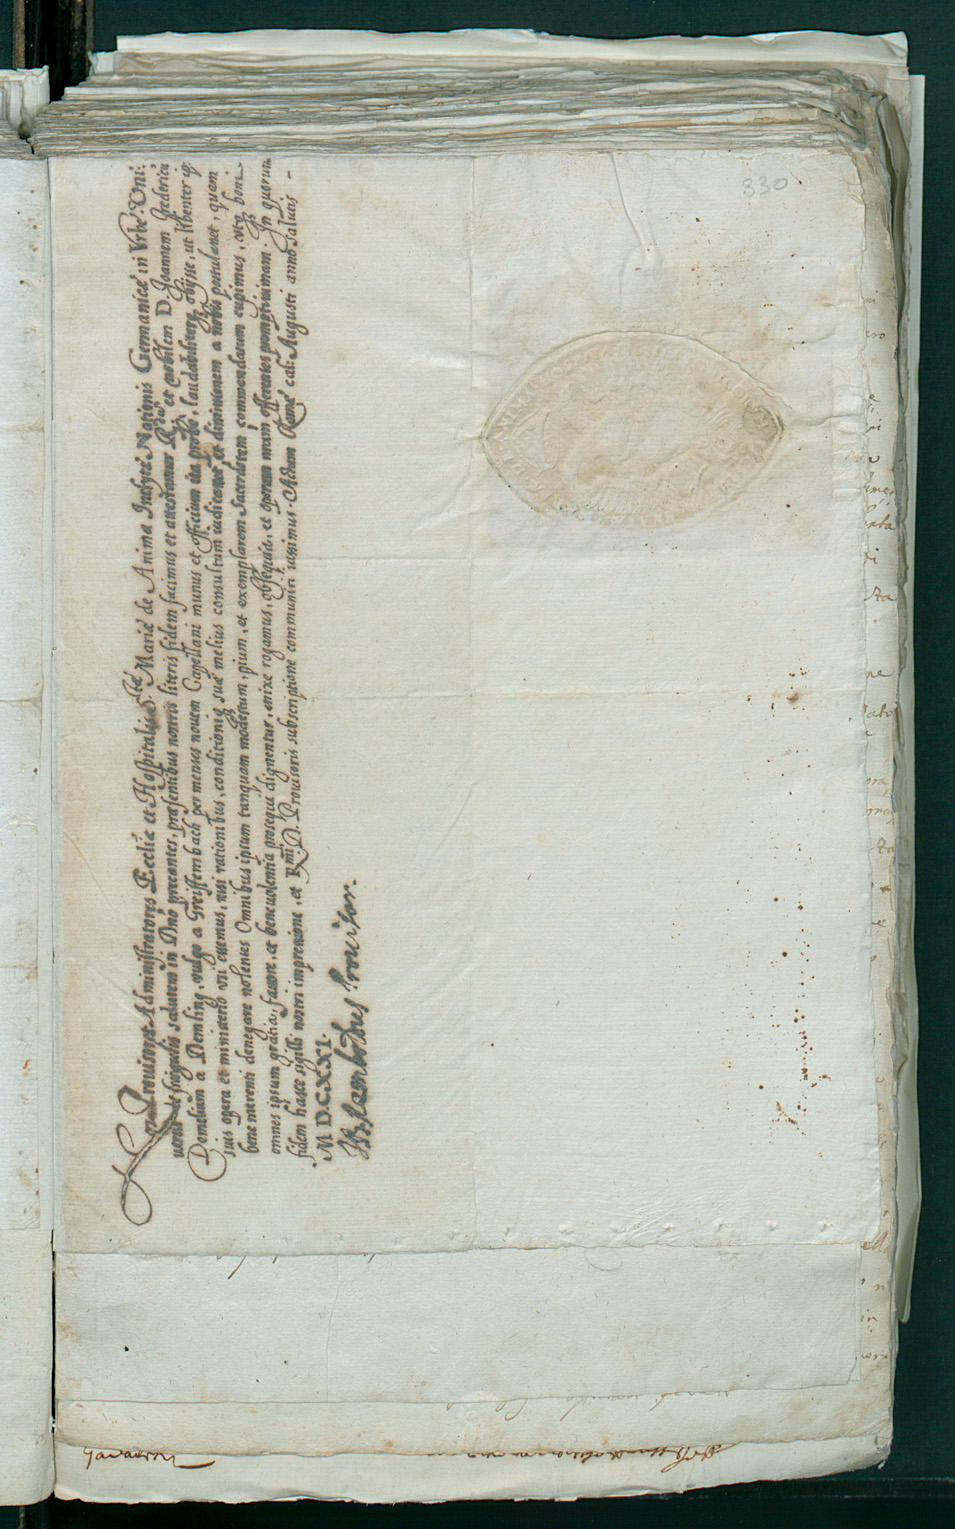 Nos Prouisores Administratores Eccliæ et Hospitalis Bte Mariæ de Anima Inclytæ Nationis Germanicæ in Vrbe. Vni:
uersis et singulis salutem in Dno precantes, præsentibus nostris literis fidem facimus et attestamur Rdum et Nobilem D. Joannem Fredericū
Demelium a Demling, vulgo a Greiffembach per menses nouem Capellani munus et officium ita probè, laudabiliterq obijsse, ut libenter ip
suis opera et ministerio vti essemus, nisi rationibus, conditionis suæ melius consultum iudicasset et dimissionem a nobis postulasset, quam
bene merenti denegare nolentes Omnibus ipsum tanquam modestum, pium, et exemplarem Sacerdotem commendatum cupimus, vtq boni
omnes ipsum gratia, fauore, et beneuolentia prosequi dignentur, enixe rogamus, obsequia, et operam nostram offerentes promptissimam. In quorum
fidem hasce sigilli nostri impressione, et Rmi D. Prouisoris subscriptione communiri iussimus. Actum Romæ cal: Augusti anno Salutis -
M DCXXI.
Prouisor.
330